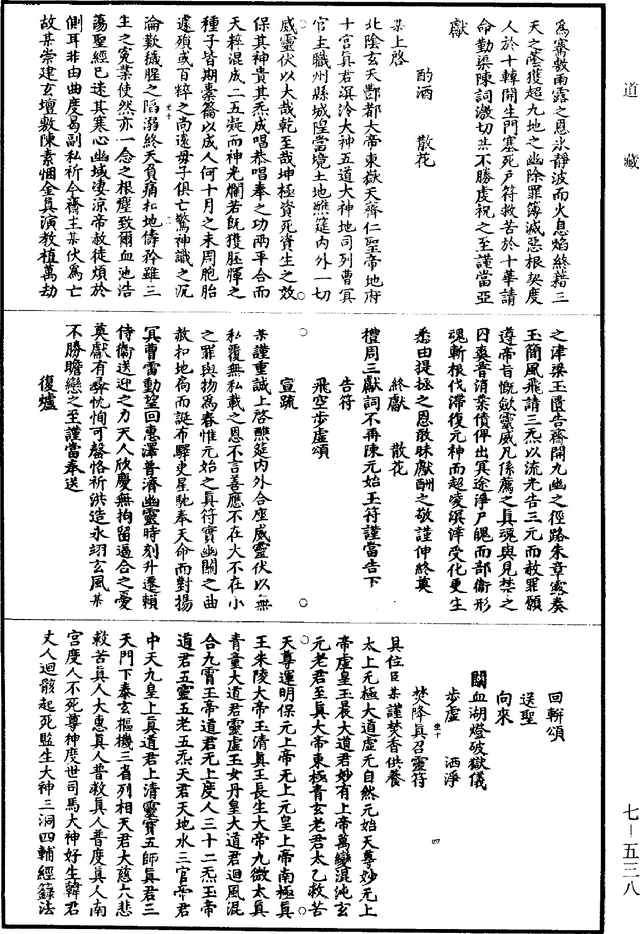 道藏
爲審敷雨露之恩氷靜波而火息焰終藉三
天之蔭獲超九地之幽除罪簿滅惡根契度
人於十轉開生門塞死戸符救苦於十華請
命勤渠陳詞激切某不勝虔祝之至謹當亞
獻
酌酒　散花
某上啓
北陰玄天酆都大帝東嶽天齊仁聖帝地府
十宫眞君溟泠大神五道大神地司列曹冥
官主職州縣城隍當境土地醮筵内外一切
威靈伏以大哉乾至哉坤極資死資生之效
保其神貴其炁成唱恭唱奉之功兩平合而
天粹混成二五凝而神光爛若既獲胚腪之
種子皆期耋耋以成人何十月之未周胞胎
遽殞或百粹之尚遠母子俱亡驚神識之沉
淪歎穢腥之陷溺終天負痛扣地儔矜雖三
生之寃業使然亦一念之根塵致爾血池浩
蕩聖經已述其寒心幽域凄涼帝赦徒煩於
側耳非由曲度曷副私祈今齋主某伏爲亡
故某崇建玄壇敷陳素悃金眞演教植萬劫
之津梁玉匱告齋開九幽之徑路朱章露奏
玉簡風飛請三炁以流光告三元而赦罪願
遵帝旨慨歛靈威凡係薦之眞魂與見禁之
囚爽普消業債俾出冥途淨尸魄而部衛形
魂斬根伐滯復元神而超凌溟涬受化更生
悉由提拯之恩敢昧獻酬之敬謹伸終奠
終獻　散花
禮周三獻詞不再陳元始玉符謹當告下
告符
飛空步虛頌
宣疏
某謹重誠上啓醮筵内外合座威靈伏以無
私覆無私載之恩不言善應不在大不在小
之罪與物爲春惟元始之眞符實幽關之曲
赦扣地扃而誕布驛吏星馳奉天命而對揚
冥曹雷動望回惠澤普濟幽靈時刻升遷賴
侍衞送迎之力天人欣慶無拘留遏合之憂
奠獻有嚴忱恂可罄恪祈洪造永翊玄風某
不勝瞻戀之至謹當奉送
復爐
回軿頌
送聖
向來
關血湖燈破獄儀
步虛　洒淨
焚降眞召靈符
具位臣某謹焚香供養
太上无極大道虛无自然元始天尊妙无上
帝虛皇玉晨大道君妙有上帝萬變混沌玄
元老君至眞大帝東極青玄老君太乙救苦
天尊運明保元上帝无上元皇上帝南極眞
王朱陵大帝玉清眞王長生大帝九微太眞
青童大道君靈虛玉女丹皇大道君迴風混
合九霄玉帝道君无上度人三十二炁玉帝
道君五靈五老五炁天君天地水三官帝君
中天九皇上眞道君上清靈寳五師眞君三
天門下泰玄樞機三省列相天君大慈大悲
救苦眞人大惠眞人普救眞人普度眞人南
宫度人不死尊神度世司馬大神好生韓君
丈人迴骸起死監生大神三洞四輔經籙法
七—五三八